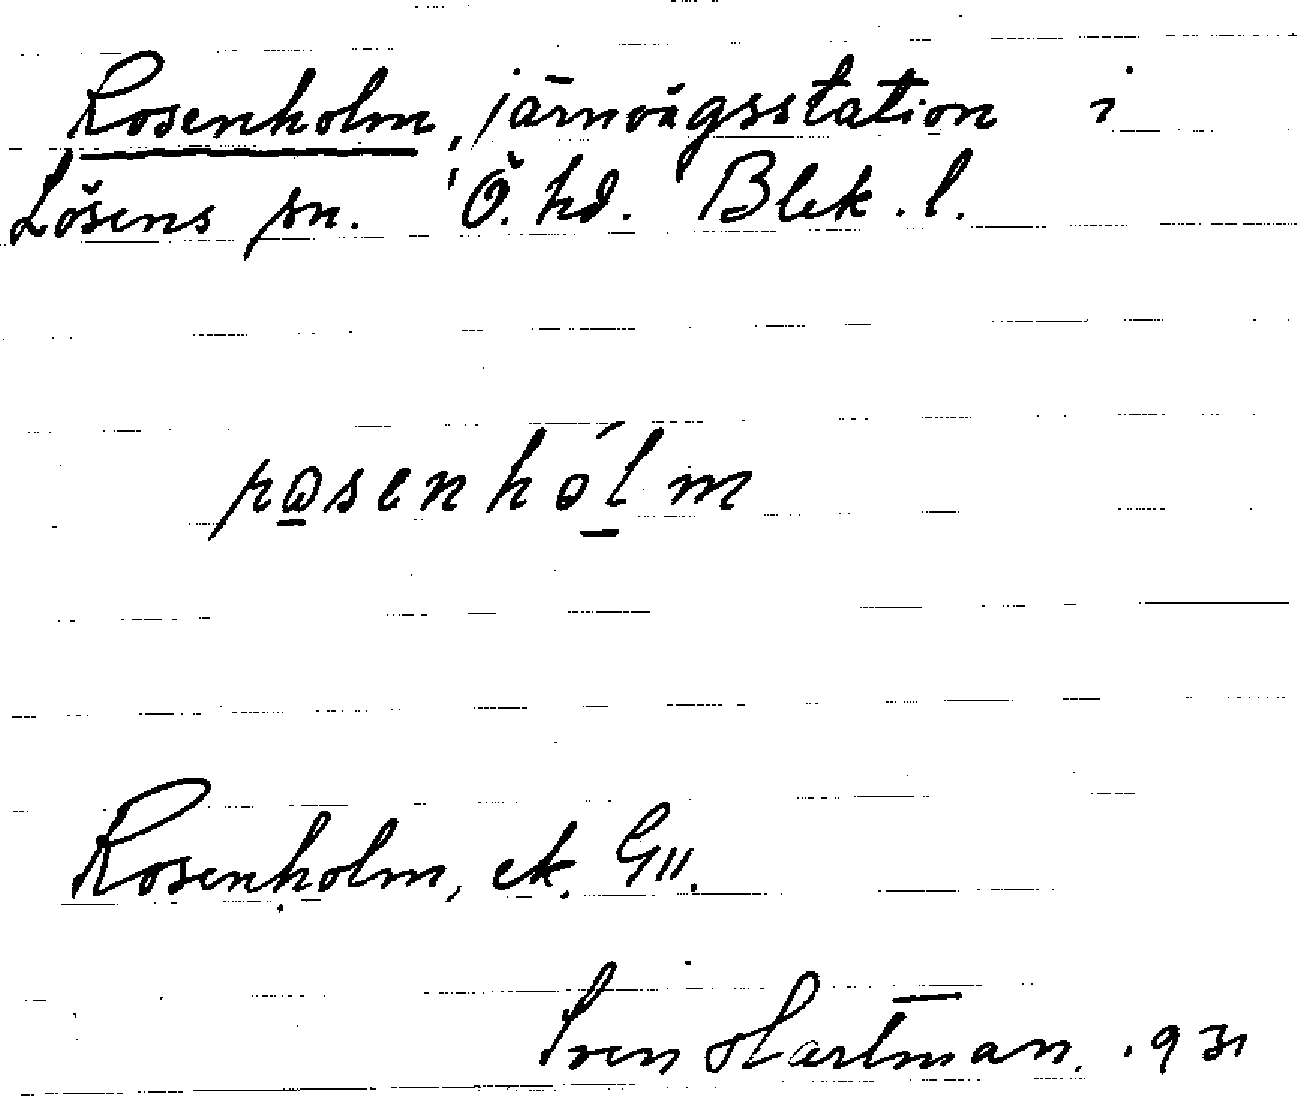 Rosenholm, järnvägsstation i
Lösens sn. Ö. hd. Blek. l.
rosenhólm
Rosenholm, ek. G11.
Sven Hartman. 931